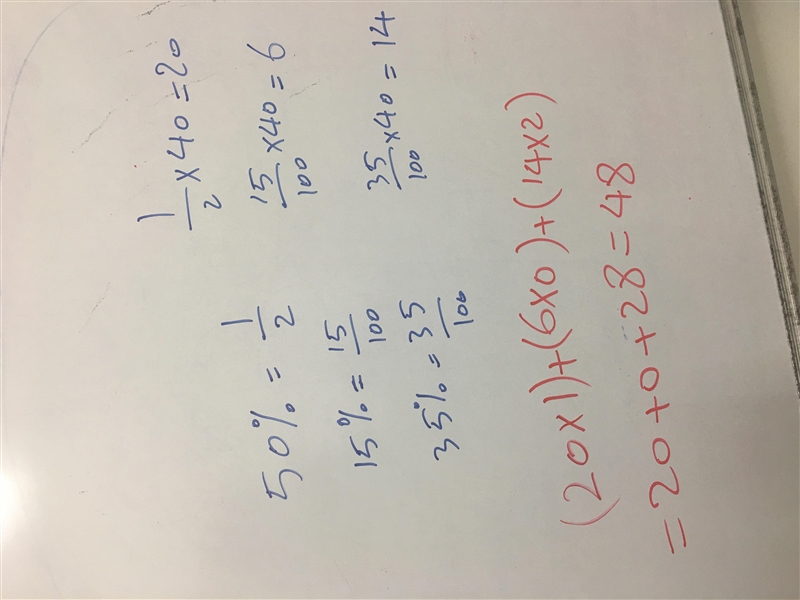 50% = 1/2
1/2 x 40 = 20
15% = 15/100
15/100 x 40 = 6
35% = 35/100
35/100 x 40 = 14
(20x1)+(6x0)+(14x2)
=20+0+28=48